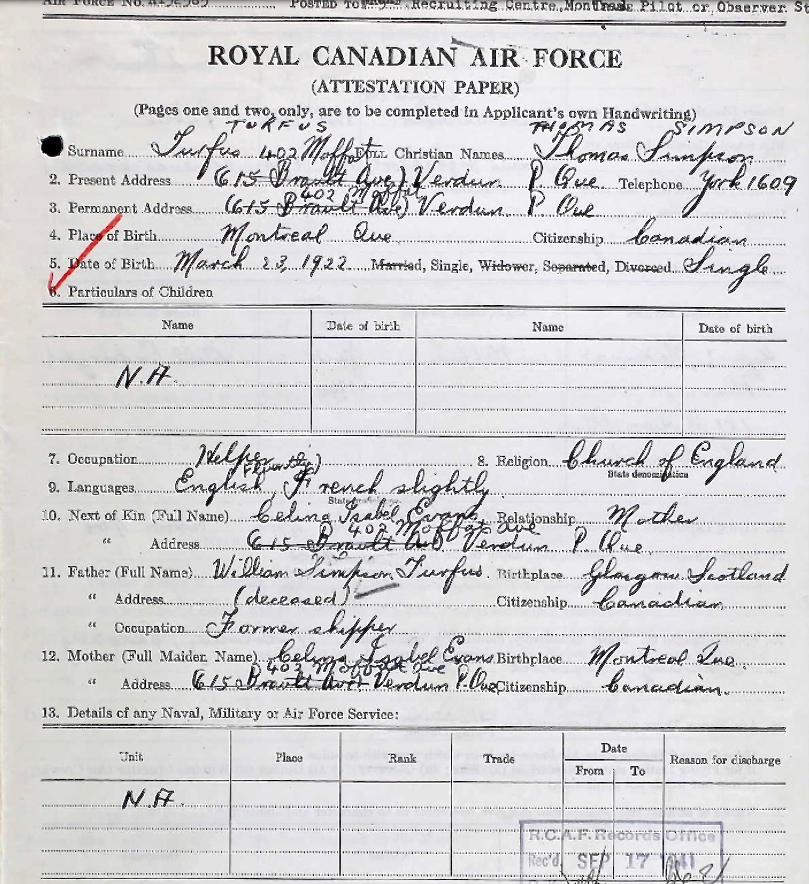 AIR FORCE NO. POSTED TO Recruiting Centre, Montreal Pilot or Observer St
ROYAL CANADIAN AIR FORCE
(ATTESTATION PAPER)
(Pages one and two, only, are to be completed in Applicant's own Handwriting)
TURFUS THOMAS SIMPSON
Surname Turfus 402 Moffat Full Christian Names Thomas Simpson
2. Present Address (615 Brault Ave) Verdun P Que Telephone York 1609
402 Moffat
3. Permanent Address (615 Brault Ave) Verdun P Que
4. Place of Birth Montreal Que Citizenship Canadian
5. Date of Birth March 23, 1922 Married, Single, Widower, Separated, Divorced Single
6. Particulars of Children
Name Date of birth Name Date of birth
N.A.
7. Occupation Helper 8. Religion Church of England
State denomination
9. Languages English, French slightly
10. Next of Kin (Full Name) Celina Isabel Evans Relationship Mother
402 Moffat Ave
" Address 615 Brault Ave Verdun P. Que
11. Father (Full Name) William Simpson Turfus Birthplace Glasgow Scotland
" Address (deceased) Citizenship Canadian
" Occupation Former shipper
12. Mother (Full Maiden Name) Celina Isabel Evans Birthplace Montreal Que.
402 Moffat Ave
" Address 615 Brault Ave Verdun P. Que Citizenship Canadian.
13. Details of any Naval, Military or Air Force Service:
Unit Place Rank Trade Date Reason for discharge
From To
N.A.
R.C.A.F. Records Office
Rec'd. SEP 17 1941